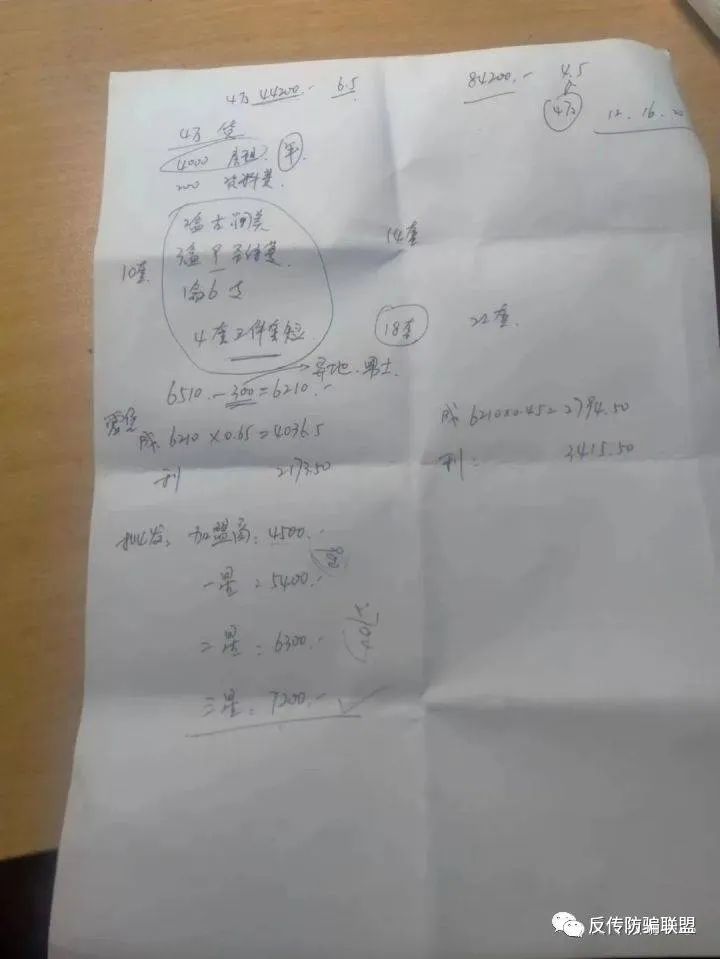 4万 44200.- 6.5
84200.- 4.5
4万
12. 16. 20
4万 货
4000 房租. 年.
200 资料费.
10套.
14套
1套6支
4套三件套短
18套
22套.
6510.-300=6210.-
异地.男士.
零售
成 6210×0.65=4036.5
利 2173.50
成 6210×0.45=2794.50
利: 3415.50
批发: 加盟商:4500.-
一星:5400.-
900
二星:6300.-
三星:7200.-
反传防骗联盟